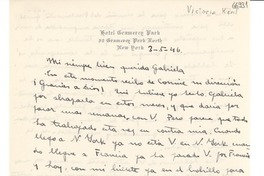 Victoria Kent
Hotel Gramercy Park
52 Gramercy Park North
New York
3-5-46.
Mi siempre bien querida Gabriela
En este momento recibo de Connie su dirección
¡Gracias a Dios! Mis
por abrazarla en estos meses, y que daría por
pasar unas semanas, con V. Pero parece que todo
ha trabajado esta vez en contra mia. Cuando
llego a N. York ya no está V en N. York cuan-
do llego a Francia ya ha pasado V. por Francia
y hoy, con mi en el bolsillo para